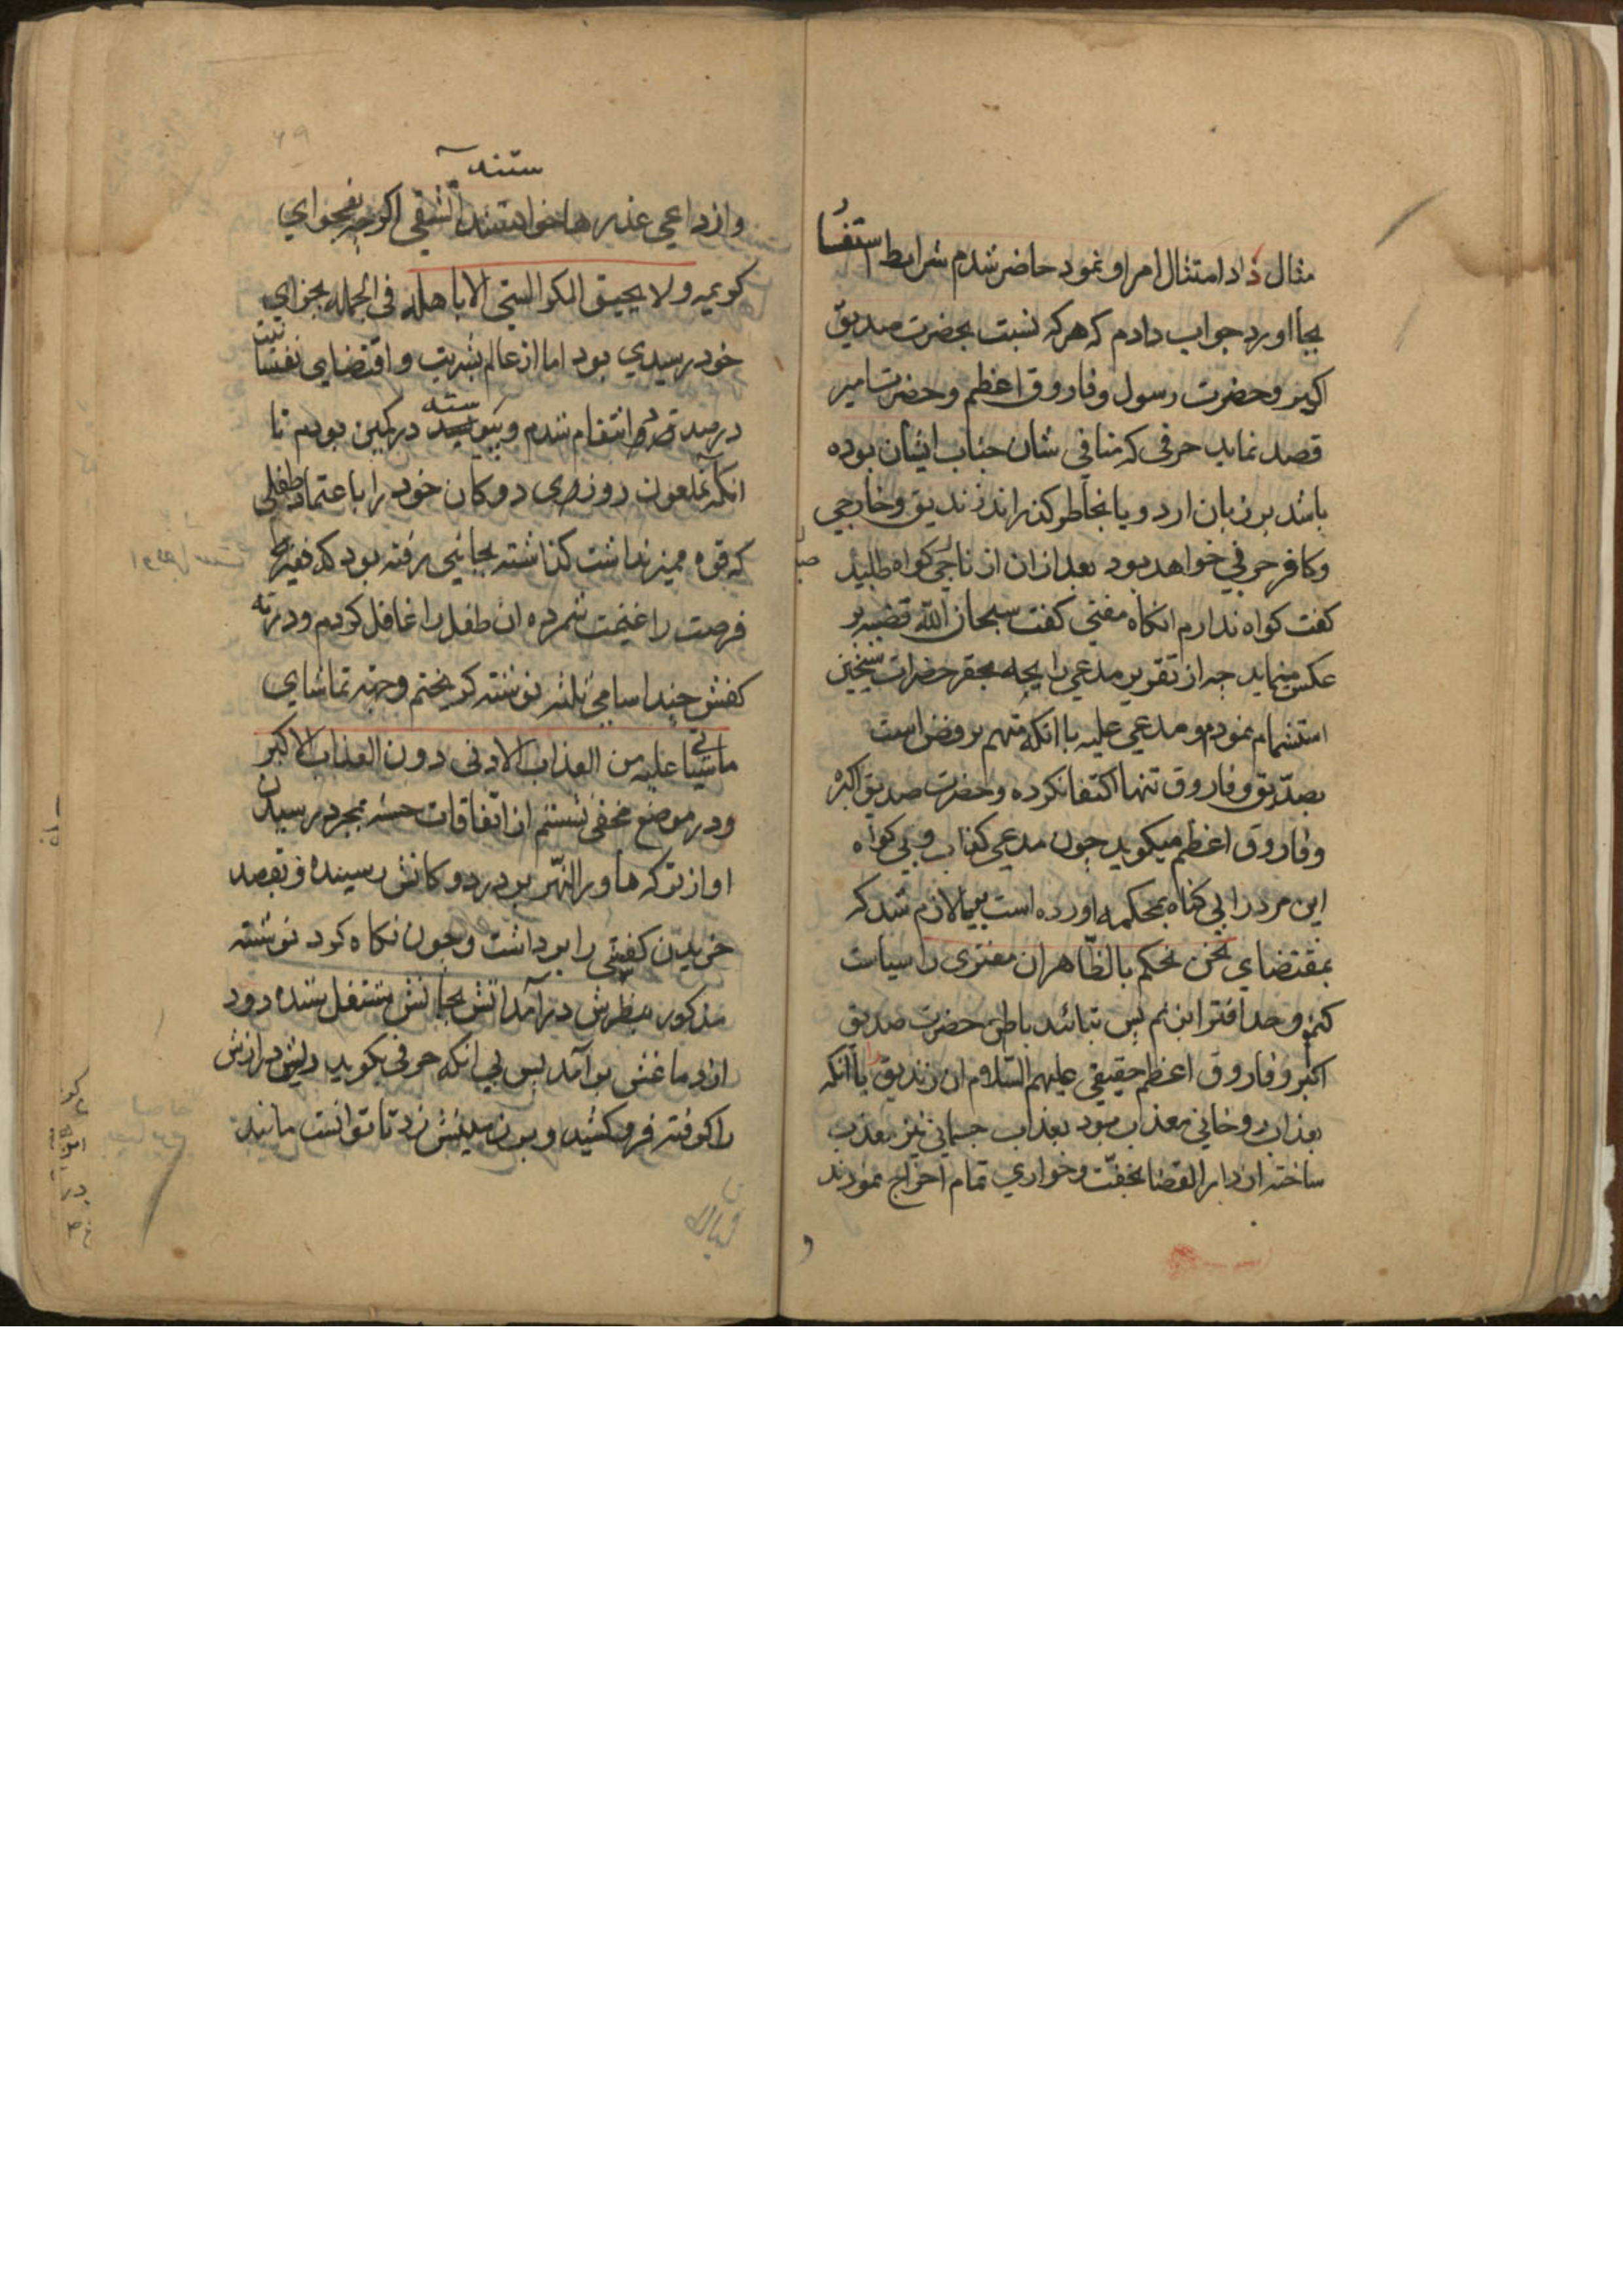 مثال داد امتثال امر او نمود حاضر شدم شرایط استفسا
بجا اورد جواب دادم که هرکه نسبت بحضرت صدیق
اکبر و حضرت رسول و فاروق اعظم و حضرت امیر
قصد نماید حرفی که منافی شان جناب ایشان بوده
باشد بر زبان ارد و یا بخاطر کذراند زندیق و خارجی
و کافر حربی خواهد بود بعد ازان از ناجی کواه طلبید
کفت کواه ندارم انکاه مفتی کفت سبحان الله قضیه بر
عکس مینماید چه از تقریر مدعی رایحه بحقر حضرات شیخین
استشمام نمودم و مدعی علیه با انکه متهم برفض است
بصدیق و فاروق تنها اکتفا نکرده و حضرت صدیق اکبر
و فاروق اعظم میکوید چون مدعی کذاب و بی کواه
این مرد را بی کناه بمحکمه اورده است بر ما لازم شد که
بمقتضای نحن نحکم بالظاهر ان مفتری را سیاست
کنیم و حد افترا بزنیم پس بتائید باطن حضرت صدیق
اکبر و فاروق اعظم حقیقی علیهم السلام ان زندیق را با انکه
بعذاب روحانی معذب بود بعذاب جسمانی نیز معذب
ساخته از دار القضا بخفت و خواری تمام اخراج نمودند
و
ستند
و از داعی عذرها خواستند ان شقی اکرچه بفحوای
کریمه و لا یحیق المکر السیئ الا باهله فی الجمله بجزای
خود رسیدی بود اما از عالم بشریت و اقتضای نفسانیت
در صدد انتقام شدم و پیوسته در کمین بودم تا
انکه ملعون روزی دوکان خود را با عتماد طفلی
که قوه ممیز نداشت کذاشته بجائی رفته بود که فقیر
فرصت را غنیمت شمرده ان طفل را غافل کردم و در ته
کفش چند اسامی ثلثه نوشته کریختم و جهة تماشای
ما سیاتی علیه من العذاب الادنی دون العذاب الاکبر
و در موضع مخفی نشستم از اتفاقات حسنه بمجرد رسیدن
او از ترکه ماورالنهر بود در دوکانش رسیده و بقصد
خریدن کفشی را برداشت و چون نکاه کرد نوشته
مذکور بنظرش درآمد اتش بجانش مشتعل شده دود
از دماغش برآمد پس بی انکه حرفی بکوید ریش درازش
را کرفته فرو کشید و بر زمینش زد تا توانست مانند